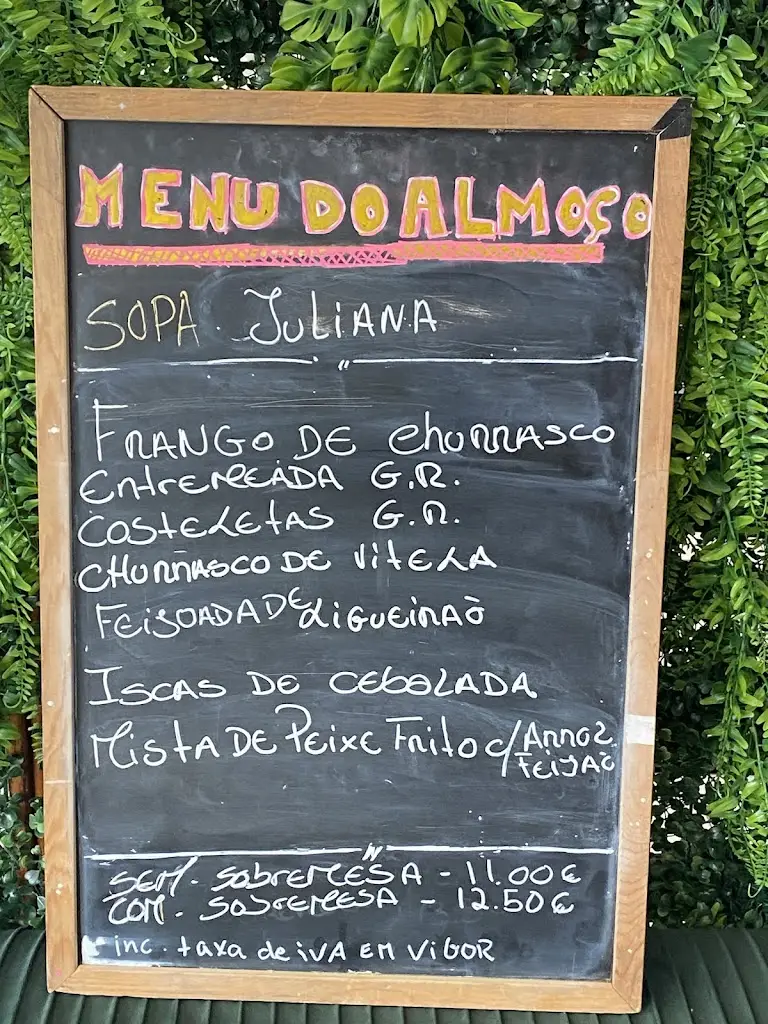 MENU DO ALMOÇO
SOPA. JULIANA
FRANGO DE CHURRASCO
ENTREMEADA G.R.
COSTELETAS G.R.
CHURRASCO DE VITELA
FEIJOADA DE LIGUEIRÃO
ISCAS DE CEBOLADA
MISTA DE PEIXE FRITO C/ ARROZ
FEIJÃO
SEM. SOBREMESA - 11.00€
COM. SOBREMESA - 12.50€
inc. taxa de iVA EM VIGOR